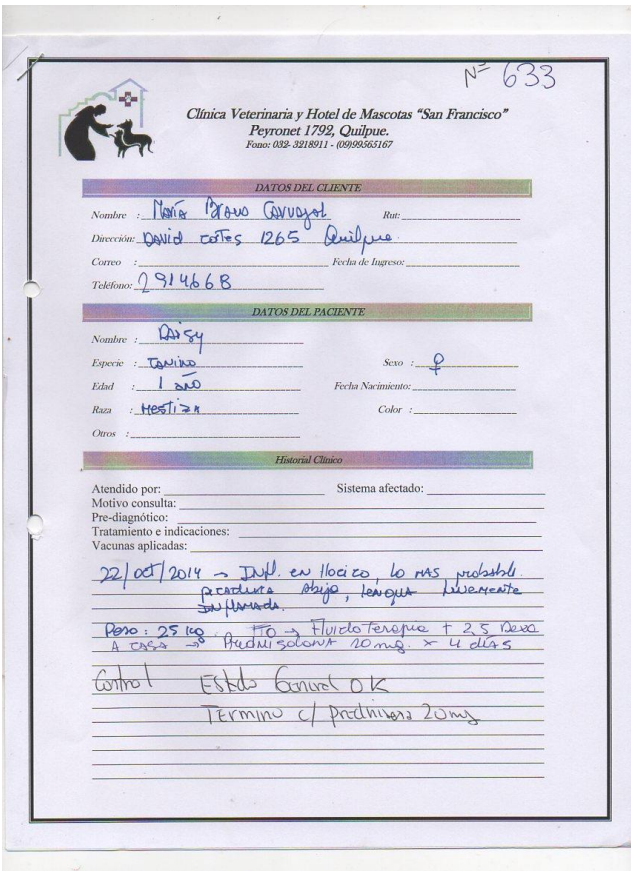 Nº 633
Clínica Veterinaria y Hotel de Mascotas "San Francisco"
Peyronet 1792, Quilpue.
Fono: 032- 3218911 - (09)99565167
DATOS DEL CLIENTE
Nombre : María Bravo Carvajal Rut:
Dirección: David Cortes 1265 Quilpue
Correo : Fecha de Ingreso:
Teléfono: 2914668
DATOS DEL PACIENTE
Nombre : Daisy
Especie : Canino Sexo : ♀
Edad : 1 año Fecha Nacimiento:
Raza : Mestiza Color :
Otros :
Historial Clínico
Atendido por: Sistema afectado:
Motivo consulta:
Pre-diagnóstico:
Tratamiento e indicaciones:
Vacunas aplicadas:
22/oct/2014 → Infl. en Hocico, lo mas probable
picadura abeja, lengua levemente
inflamada.
Peso: 25 kg. TTO → Fluidoterapia + 2,5 Dexa
A casa → Prednisolona 20 mg. x 4 días
Control Estado General OK
Termino c/ 20 mg